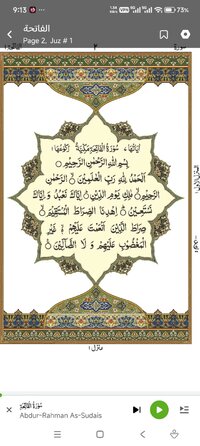 9:13
73%
الفاتحة
Page 2, Juz # 1
سورة
٢
آیاتها ٧ سُوْرَةُ الْفَاتِحَةِ مَكِّيَّةٌ رُكُوْعُهَا ١
بِسْمِ اللّٰهِ الرَّحْمٰنِ الرَّحِيْمِ
اَلْحَمْدُ لِلّٰهِ رَبِّ الْعٰلَمِيْنَ الرَّحْمٰنِ
الرَّحِيْمِ مٰلِكِ يَوْمِ الدِّيْنِ اِيَّاكَ نَعْبُدُ وَ اِيَّاكَ
نَسْتَعِيْنُ اِهْدِنَا الصِّرَاطَ الْمُسْتَقِيْمَ
صِرَاطَ الَّذِيْنَ اَنْعَمْتَ عَلَيْهِمْ غَيْرِ
الْمَغْضُوْبِ عَلَيْهِمْ وَ لَا الضَّآلِّيْنَ
منزل ١
سُوْرَةُ الْفَاتِحَةِ
Abdur-Rahman As-Sudais